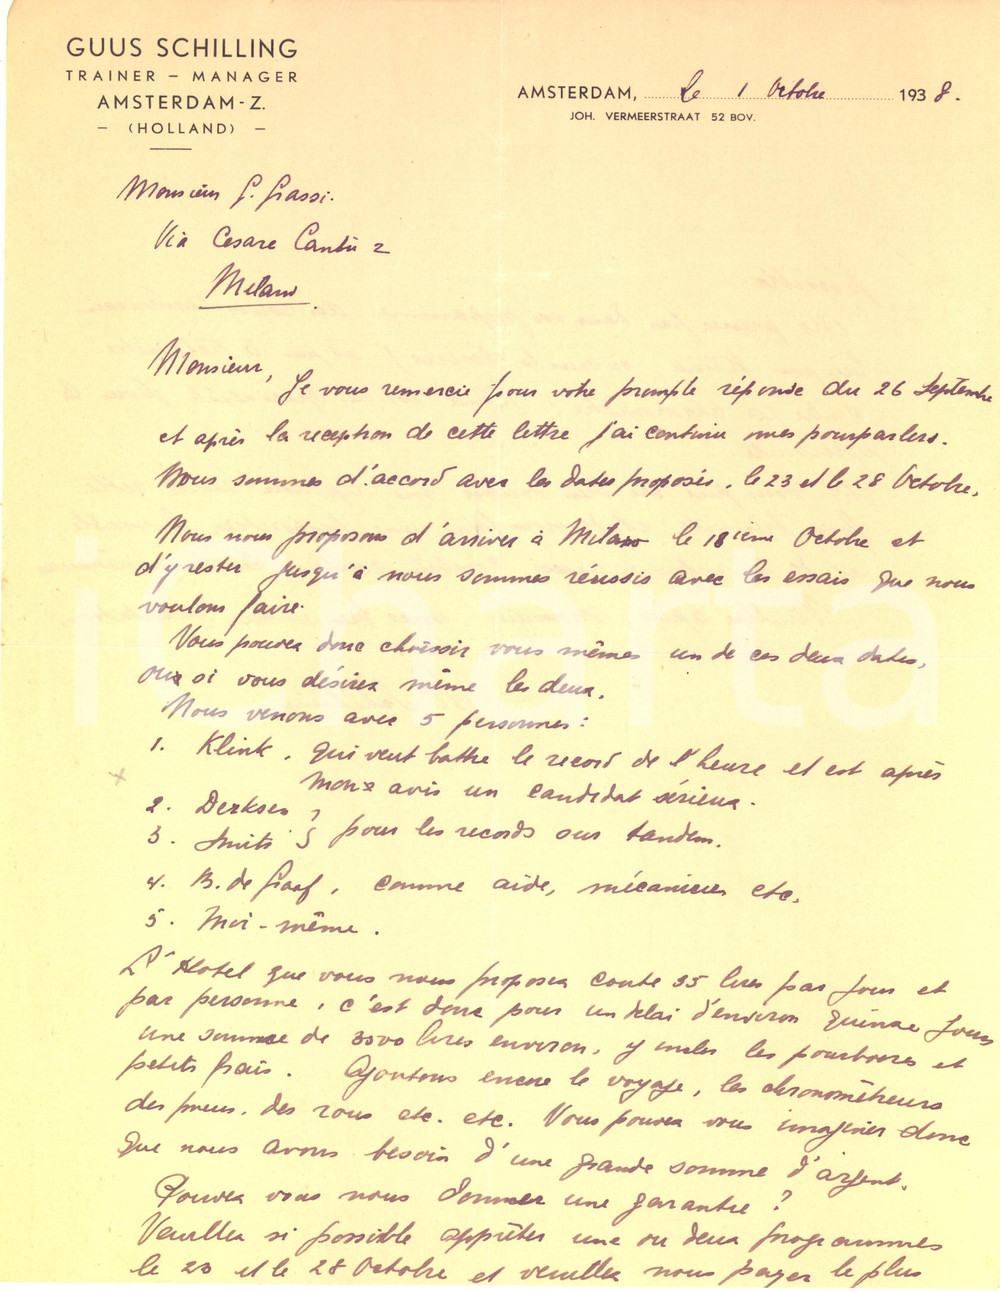 GUUS SCHILLING
TRAINER – MANAGER
AMSTERDAM-Z.
– (HOLLAND) –
AMSTERDAM, Le 1 Octobre 1938.
JOH. VERMEERSTRAAT 52 BOV.
Monsieur G. Grassi.
Via Cesare Cantù 2
Milano
Monsieur,
Je vous remercie pour votre prompte réponse du 26 Septembre
et après la reception de cette lettre j'ai continu mes pourparlers.
Nous sommes d'accord avec les dates proposés, le 23 et le 28 Octobre.
Nous nous proposons d'arriver à Milano le 18ième Octobre et
d'y rester jusqu'à nous sommes réussis avec les essais que nous
voulons faire.
Vous pouvez donc choissir vous mêmes un de ces deux dates,
ou si vous désirez même les deux.
Nous venons avec 5 personnes:
1. Klink, qui veut battre le record de l'heure et est après
mon avis un candidat sérieux.
2. Derksen
3. Smits } pour les records sur tandem.
4. B. de Graaf, comme aide, mécanicien etc.
5. Moi-même.
L'Hotel que vous nous proposez coute 35 lires par jour et
par personne, c'est donc pour un délai d'environ quinze jours
une somme de 3000 lires environ, y inclus les pourboires et
petits frais. Ajoutons encore le voyage, les chronomêteurs
des pneus, des roues etc. etc. Vous pouvez vous imaginer donc
que nous avons besoin d'une grande somme d'argent.
Pouvez vous nous donner une garantie?
Veuillez si possible apprêter une ou deux programmes
le 23 et le 28 Octobre et veuillez nous payer le plus
icharta